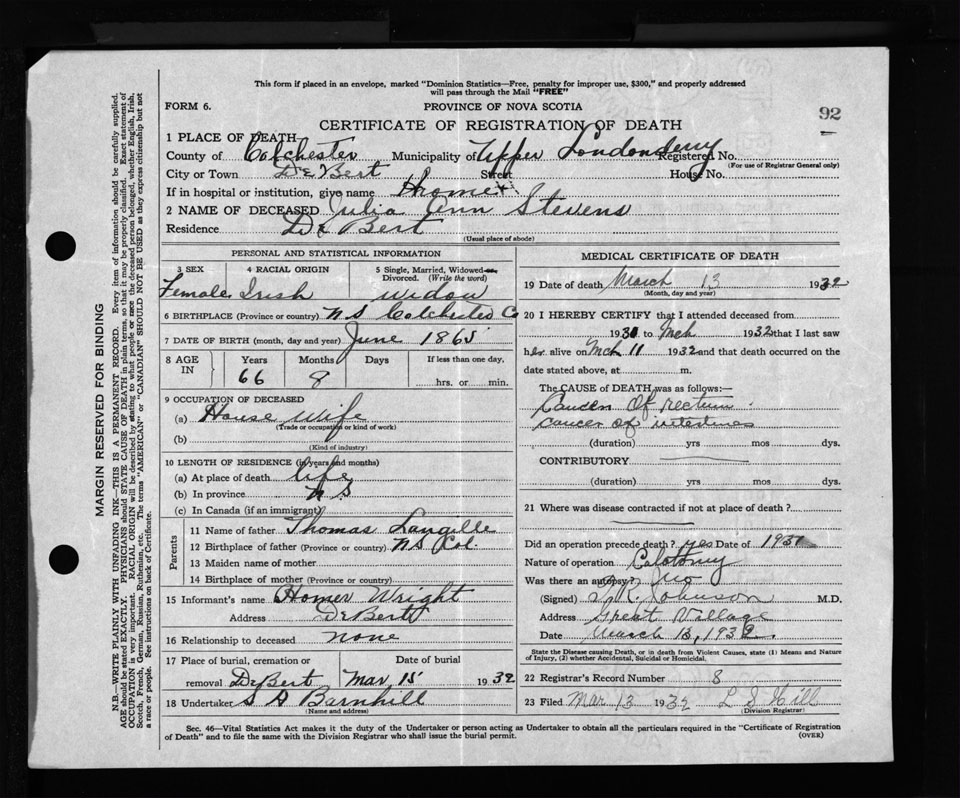 This form if placed in an envelope, marked "Dominion Statistics—Free, penalty for improper use, $300," and properly addressed
will pass through the Mail "FREE"
FORM 6.
PROVINCE OF NOVA SCOTIA
92
CERTIFICATE OF REGISTRATION OF DEATH
1 PLACE OF DEATH
County of Colchester Municipality of Upper Londonderry Registered No.
(For use of Registrar General only)
City or Town DeBert Street House No.
If in hospital or institution, give name Home
2 NAME OF DECEASED Julia Ann Stevens
Residence De Bert
(Usual place of abode)
PERSONAL AND STATISTICAL INFORMATION
3 SEX 4 RACIAL ORIGIN 5 Single, Married, Widowed or Divorced. (Write the word)
Female Irish Widow
6 BIRTHPLACE (Province or country) N S Colchester Co
7 DATE OF BIRTH (month, day and year) June 1865
8 AGE IN Years Months Days If less than one day,
66 8 hrs. or min.
9 OCCUPATION OF DECEASED
(a) House Wife
(Trade or occupation or kind of work)
(b)
(Kind of industry)
10 LENGTH OF RESIDENCE (in years and months)
(a) At place of death life
(b) In province N S
(c) In Canada (if an immigrant)
Parents
11 Name of father Thomas Langille
12 Birthplace of father (Province or country) NS Col
13 Maiden name of mother
14 Birthplace of mother (Province or country)
15 Informant's name Homer Wright
Address DeBert
16 Relationship to deceased none
17 Place of burial, cremation or Date of burial
removal DeBert Mar 15 1932
18 Undertaker S A Barnhill
(Name and address)
MEDICAL CERTIFICATE OF DEATH
19 Date of death March 13 1932
(Month, day and year)
20 I HEREBY CERTIFY that I attended deceased from
1930 to Mch 1932 that I last saw
her alive on Mch 11 1932 and that death occurred on the
date stated above, at m.
The CAUSE OF DEATH was as follows:—
Cancer of rectum
cancer of intestines
(duration) yrs mos dys.
CONTRIBUTORY
(duration) yrs mos dys.
21 Where was disease contracted if not at place of death?
Did an operation precede death? yes Date of 1931
Nature of operation Colotomy
Was there an autopsy? No
(Signed) Johnson M.D.
Address Great Village
Date March 1932
State the Disease causing Death, or in death from Violent Causes, state (1) Means and Nature
of Injury, (2) whether Accidental, Suicidal or Homicidal.
22 Registrar's Record Number 8
23 Filed Mar 13 1932 L S Hill
(Division Registrar)
Sec. 46—Vital Statistics Act makes it the duty of the Undertaker or person acting as Undertaker to obtain all the particulars required in the "Certificate of Registration
of Death" and to file the same with the Division Registrar who shall issue the burial permit.
(OVER)
MARGIN RESERVED FOR BINDING
N.B.—WRITE PLAINLY WITH UNFADING INK—THIS IS A PERMANENT RECORD. Every item of information should be carefully supplied.
AGE should be stated EXACTLY. PHYSICIANS should STATE CAUSE OF DEATH in plain terms, so that it may be properly classified. Exact statement of
OCCUPATION is very important. RACIAL ORIGIN will be described by stating to what people or race the deceased person belonged, whether English, Irish,
Scotch, French, German, Russian, Ruthenian, etc. The terms "AMERICAN" or "CANADIAN" SHOULD NOT BE USED as they express citizenship but not
a race or people. See instructions on back of Certificate.